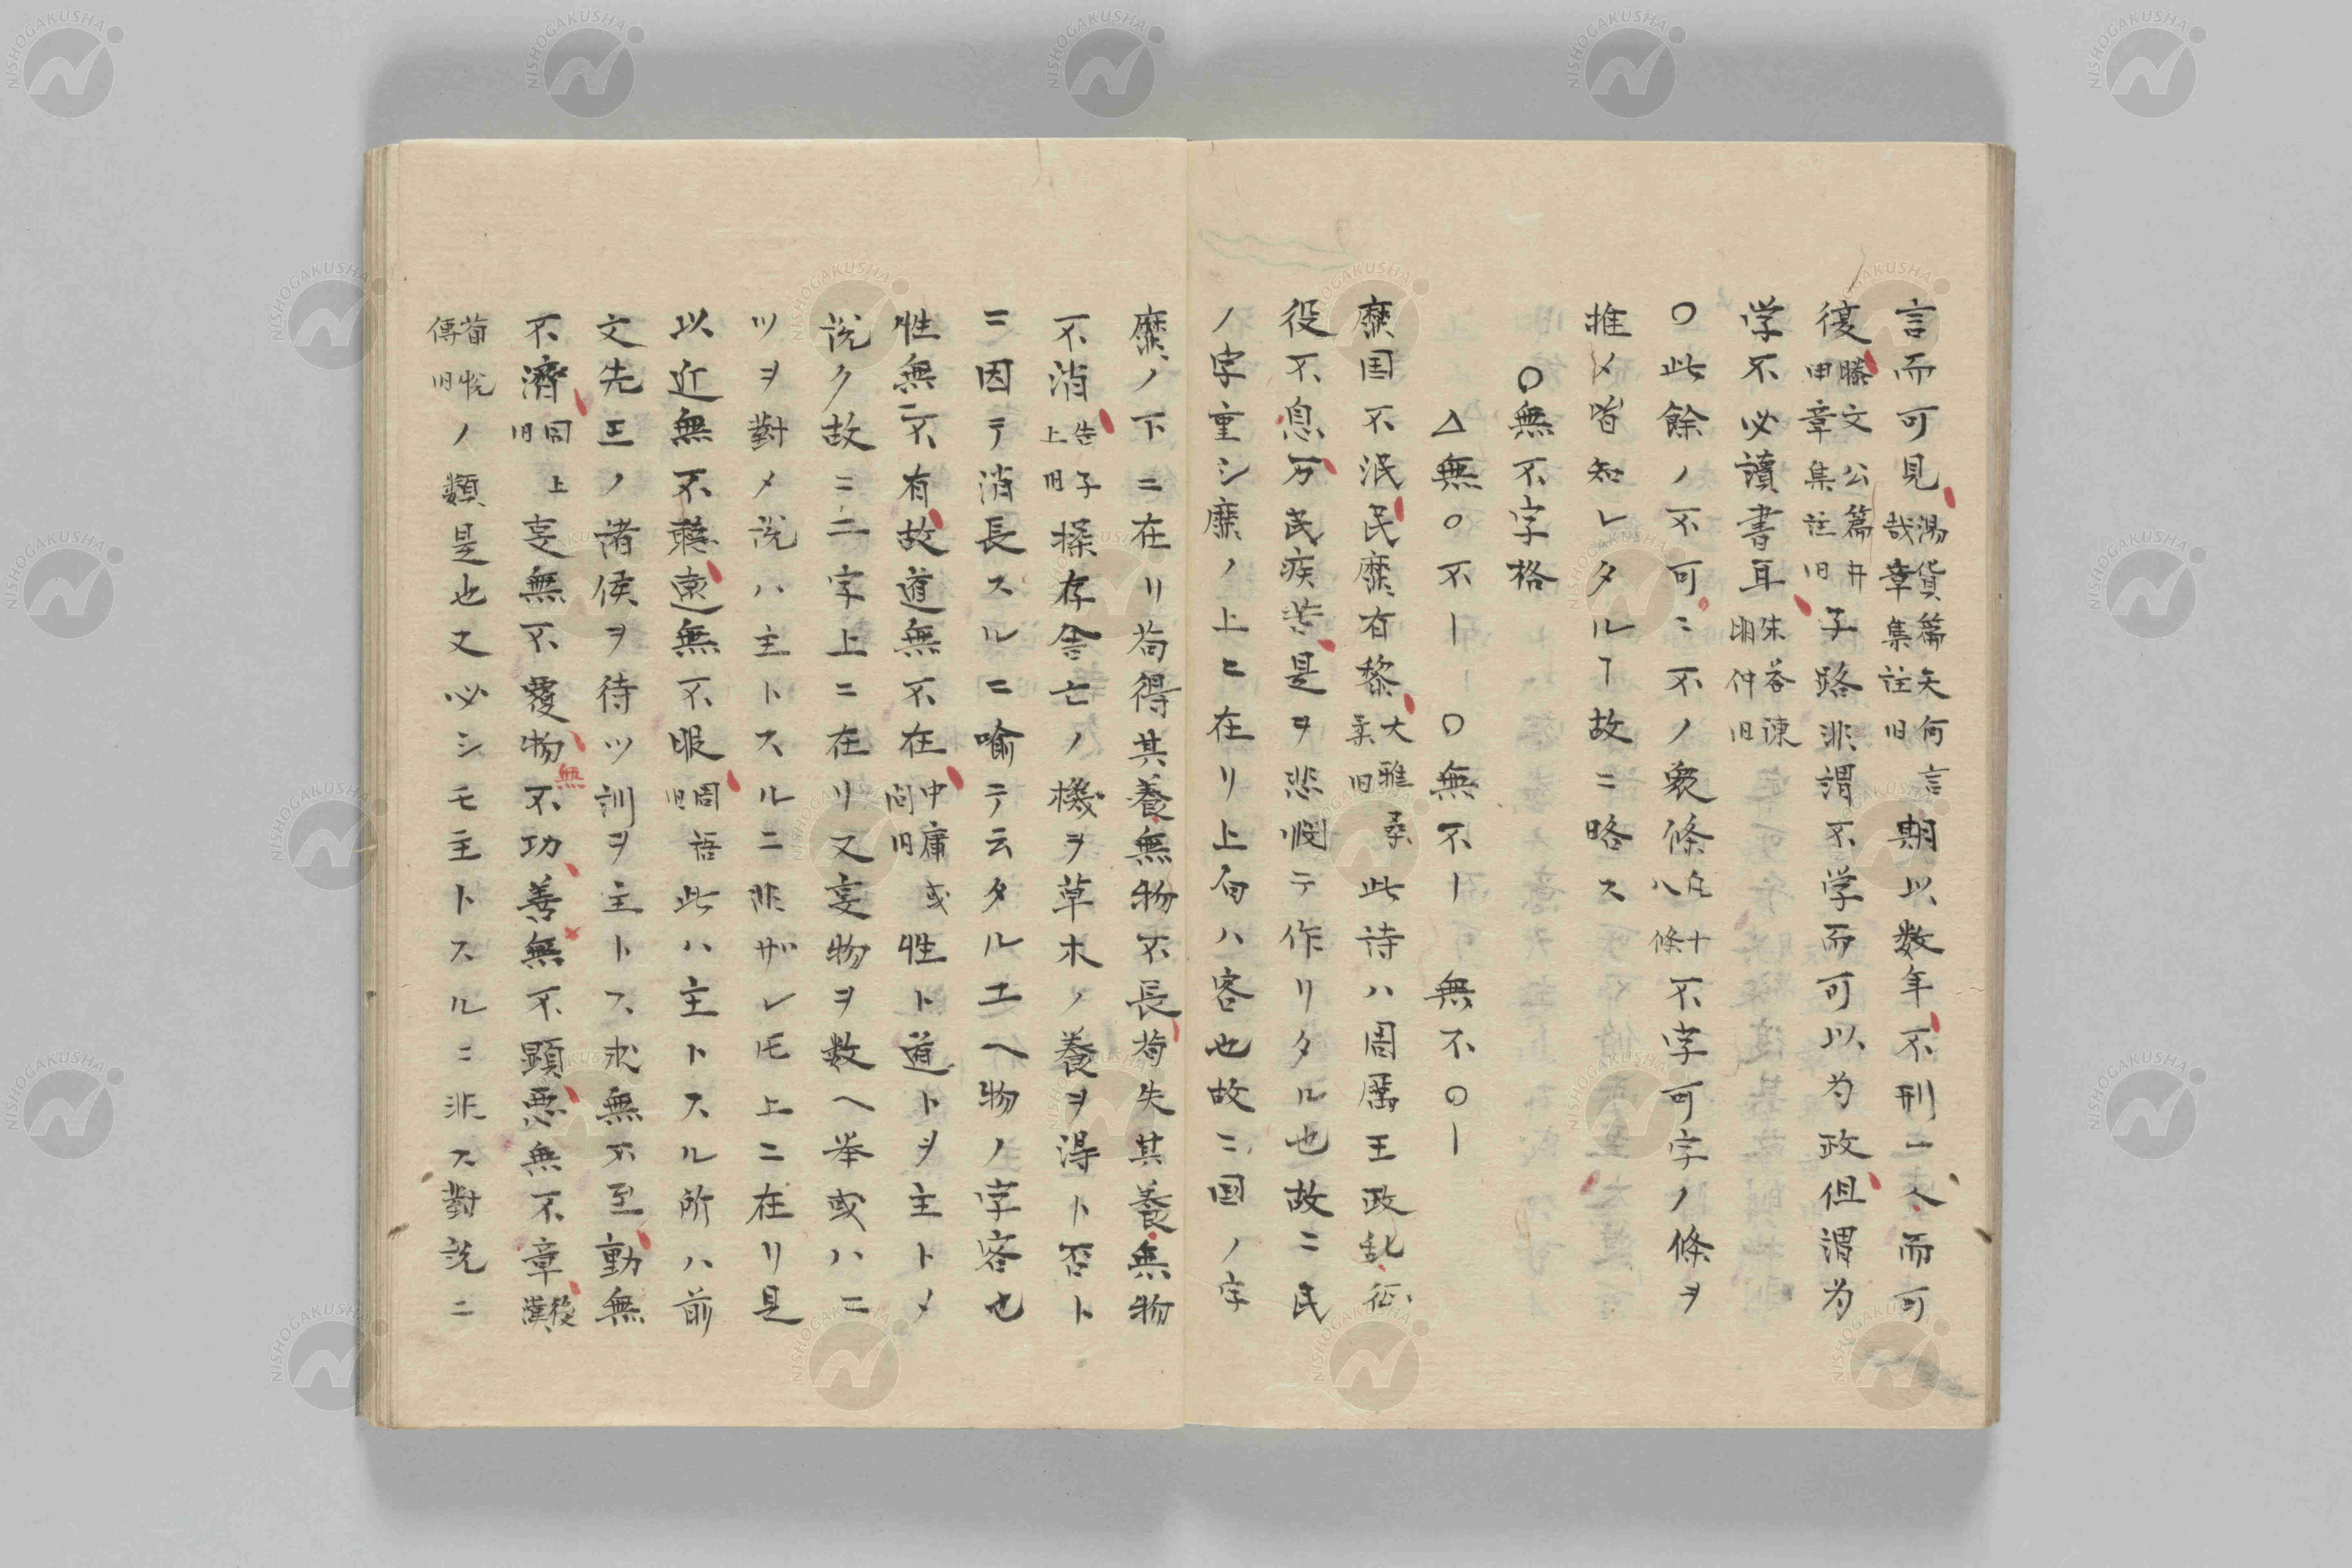 言而可見陽貨篇天何言哉章集註旧期以数年不刑一人而可
復滕文公篇井田章集註旧子路非謂不学而可以为政但謂为
学不必讀書耳朱荅陳明仲旧
〇此餘ノ不可ニ不ノ衆條凡十八條不字可字ノ條ヲ
推メ皆知レタルヿ故ニ略ス
〇無不字格
△無〇不ー 〇無不ー 無不〇ー
靡国不泯民靡有黎大雅桑柔旧此詩ハ周厲王政乱征
役不息万民疾苦是ヲ悲憫テ作リタル也故ニ民
ノ字重シ靡ノ上ヒ在リ上句ハ客也故ニ国ノ字
靡ノ下ニ在リ苟得其養無物不長苟失其養無物
不消告子上旧操存舎亡ノ機ヲ草木ノ養ヲ得ト否ト
ニ因テ消長スルニ喩テ云タルユヘ物ノ字客也
性無不有故道無不在中庸或問旧性ト道トヲ主トメ
説ク故ニ二字上ニ在リ又妄物ヲ数ヘ挙或ハ二
ツヲ對メ説ハ主トスルニ非ザレ𪜈上ニ在リ是
以近無不聴遠無不服周語旧此ハ主トスル所ハ前
文先王ノ諸侯ヲ待ツ訓ヲ主トス求無不至動無
不濟同上旧妄無不覆物無不功善無不顕悪無不章後漢
荀悦傳旧ノ類是也又必シモ主トスルニ非ス對説ニ